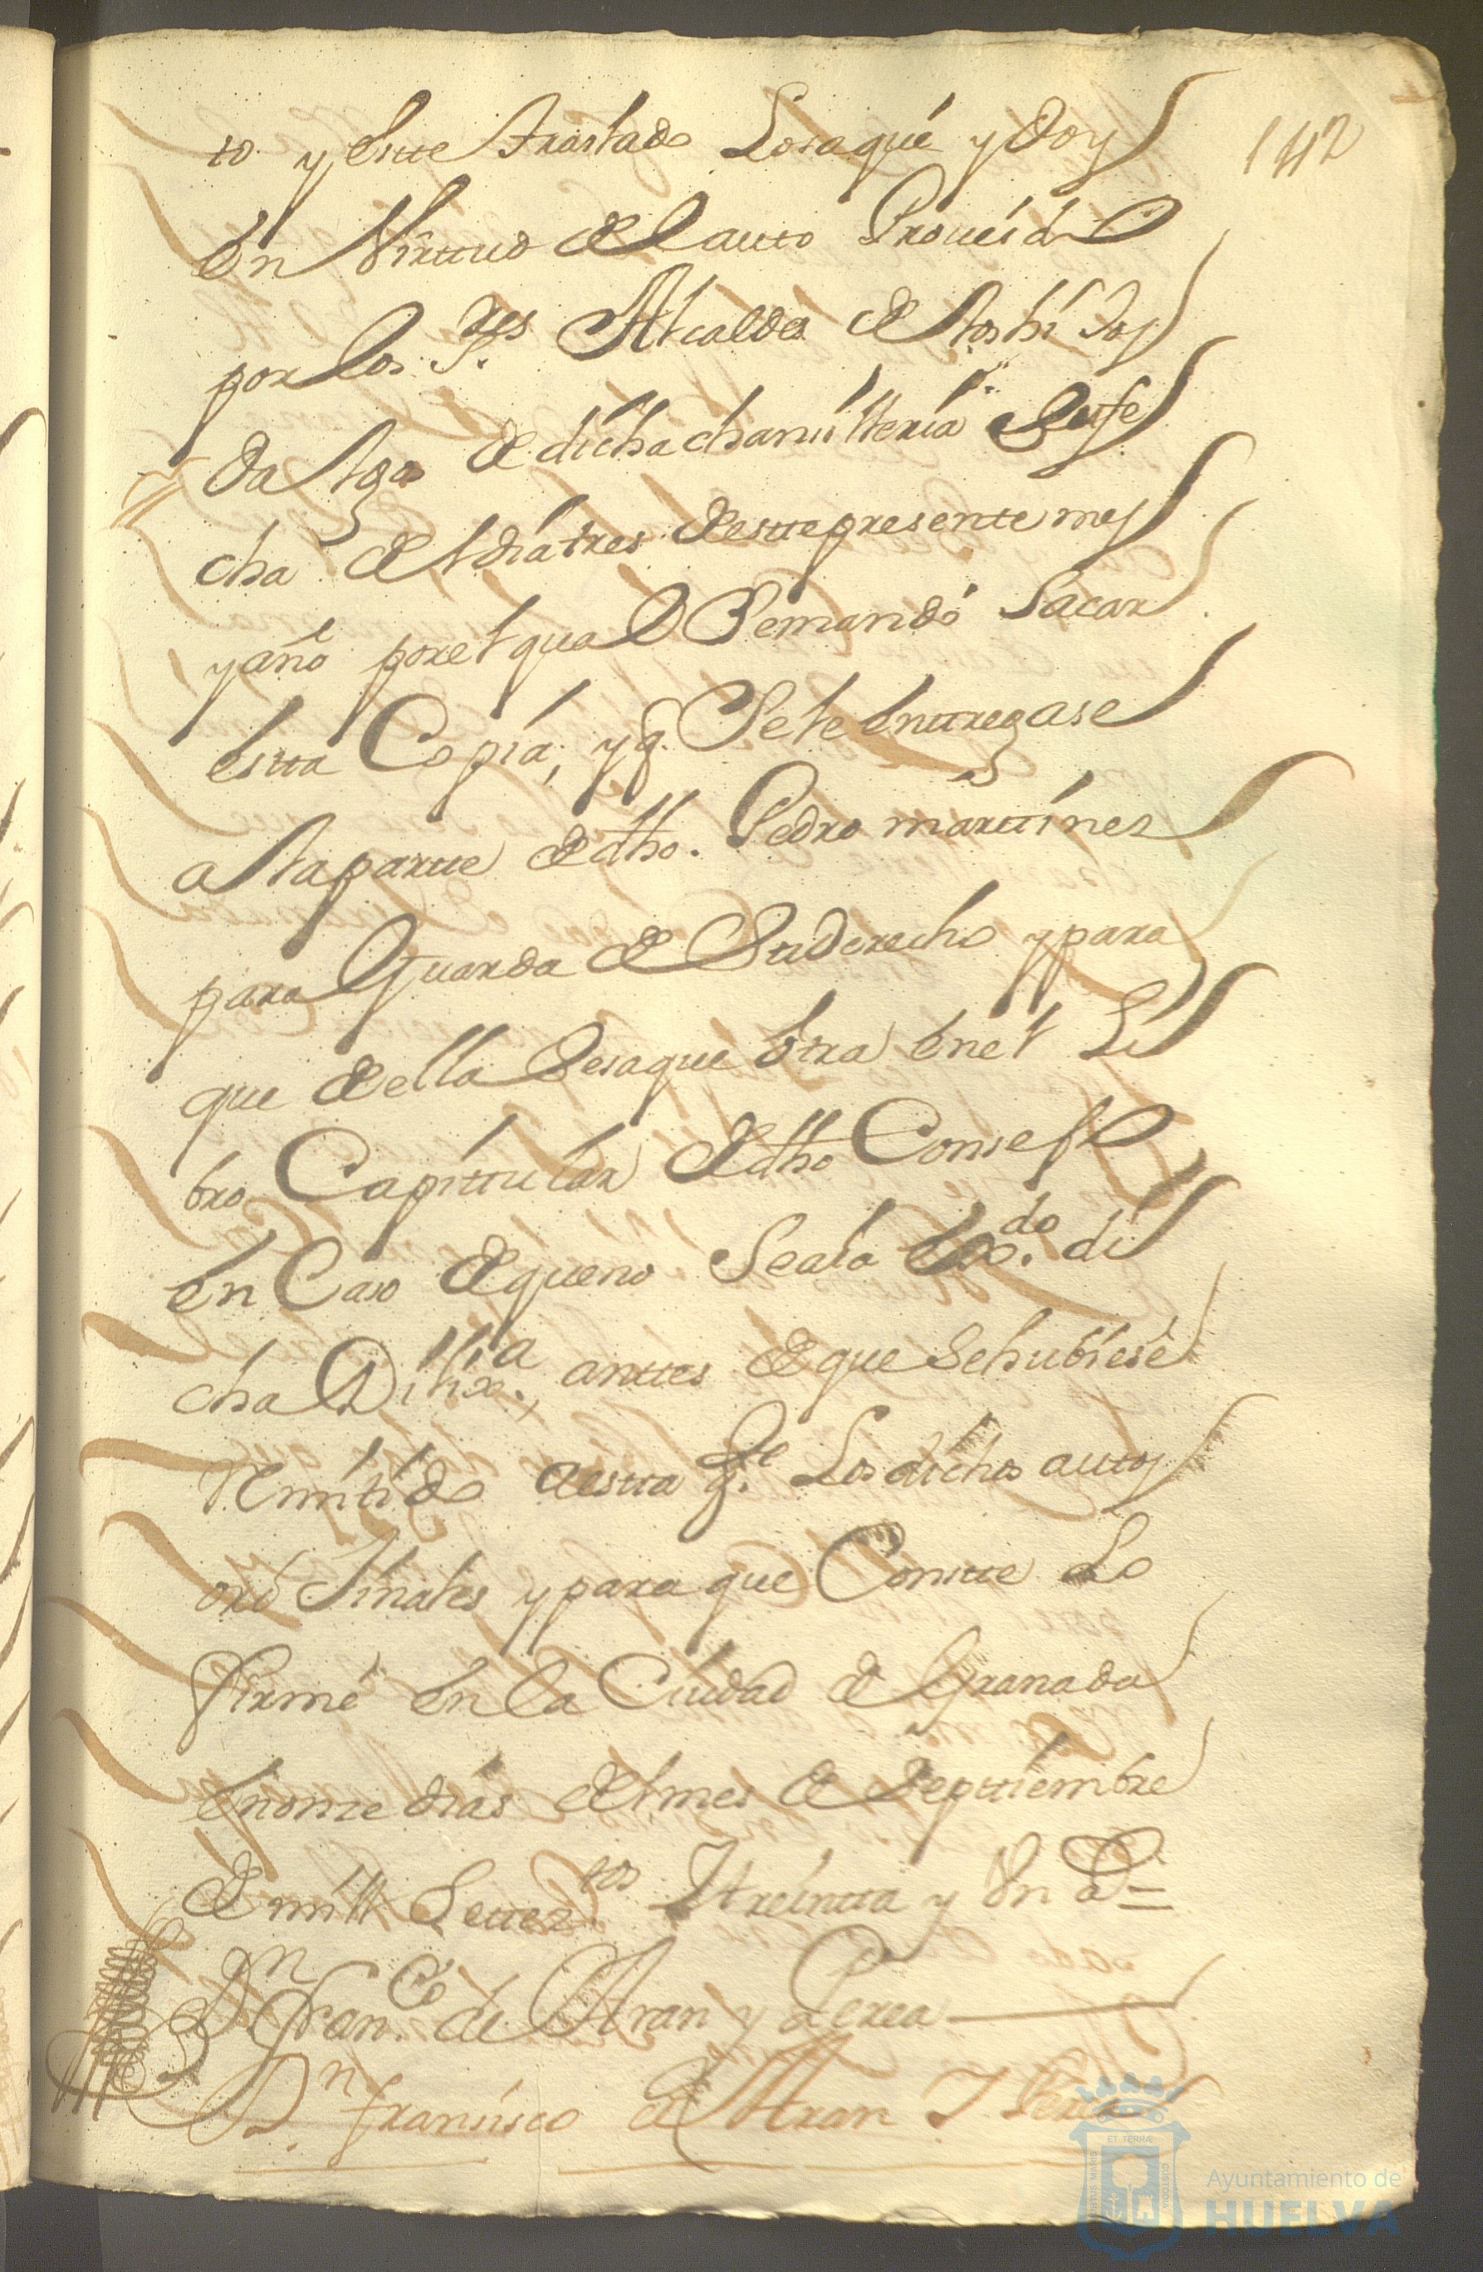 142
to y este traslado lo saqué y doy
en Virttud del auto Proueido
por los S.res Alcaldes de los hijos
dalgo de dicha chanzilleria Sufe
cha del dia tres de este presente mes
y año por el qual Se mandó Sacar
estta Copia, y q. Se le enttregase
a la partte de dho. Pedro marttinez
para Guarda de Su derecho y para
que de ella Se saque otra en el Li
bro Capittular de dho Consejo
en Caso de que no Se aia ex.do di
cha Dilix.a, anttes de que Se hubiese
Remitido a esta q.te Los dichos autos
ordJinales y para que Constte Lo
firmé en la Ciudad de Granada
en onze dias del mes de Septtiembre
de mill Settez.tos Ytreintta y Un a.o =
D.n Fran.co de Aran y Perea
D.n francisco de Aran Y Perea
ET TERRÆ
PORTUS MARIS
CUSTODIA
Ayuntamiento de
HUELVA